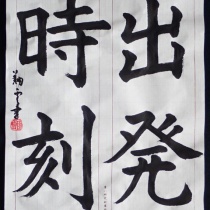 出発
時刻